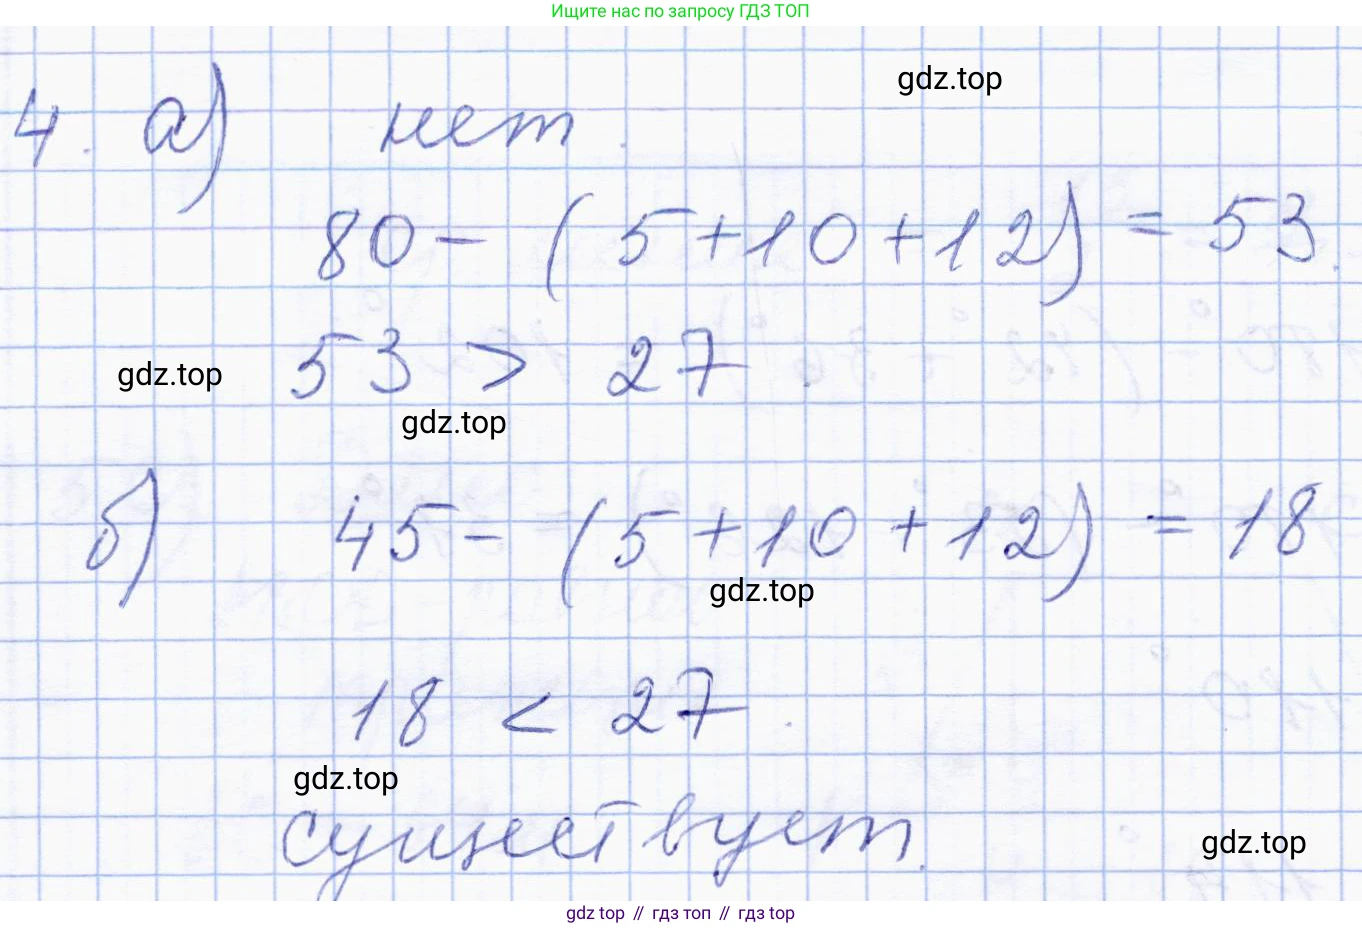 Ищите нас по запросу ГДЗ ТОП
gdz.top
4. а) нет.
80 - (5+10+12) = 53.
53 > 27.
gdz.top
gdz.top
б) 45 - (5+10+12) = 18
gdz.top
18 < 27.
gdz.top
существует.
gdz.top
gdz top // гдз топ // gdz top